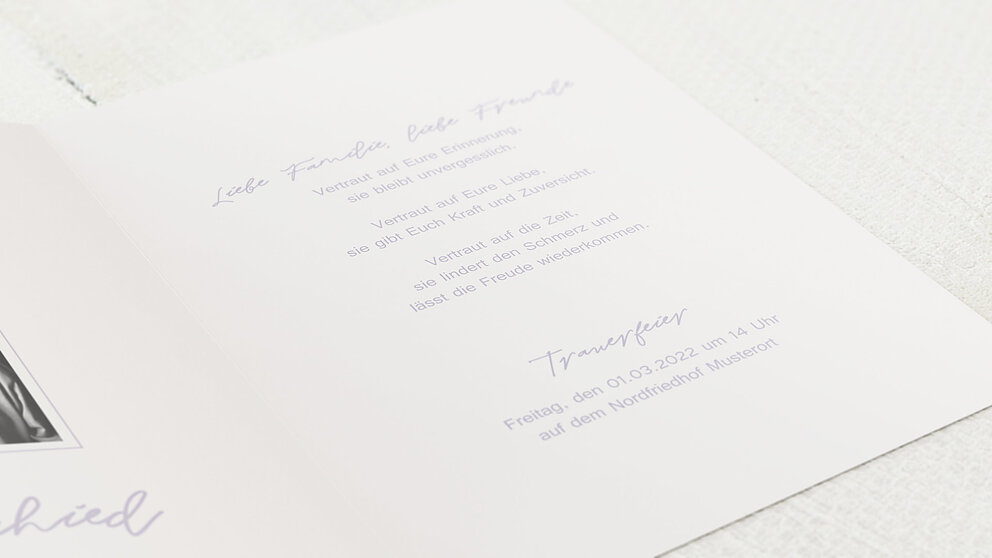 Liebe Familie, liebe Freunde
Vertraut auf Eure Erinnerung,
sie bleibt unvergesslich.
Vertraut auf Eure Liebe,
sie gibt Euch Kraft und Zuversicht.
Vertraut auf die Zeit,
sie lindert den Schmerz und
lässt die Freude wiederkommen.
Trauerfeier
Freitag, den 01.03.2022 um 14 Uhr
auf dem Nordfriedhof Musterort
hied